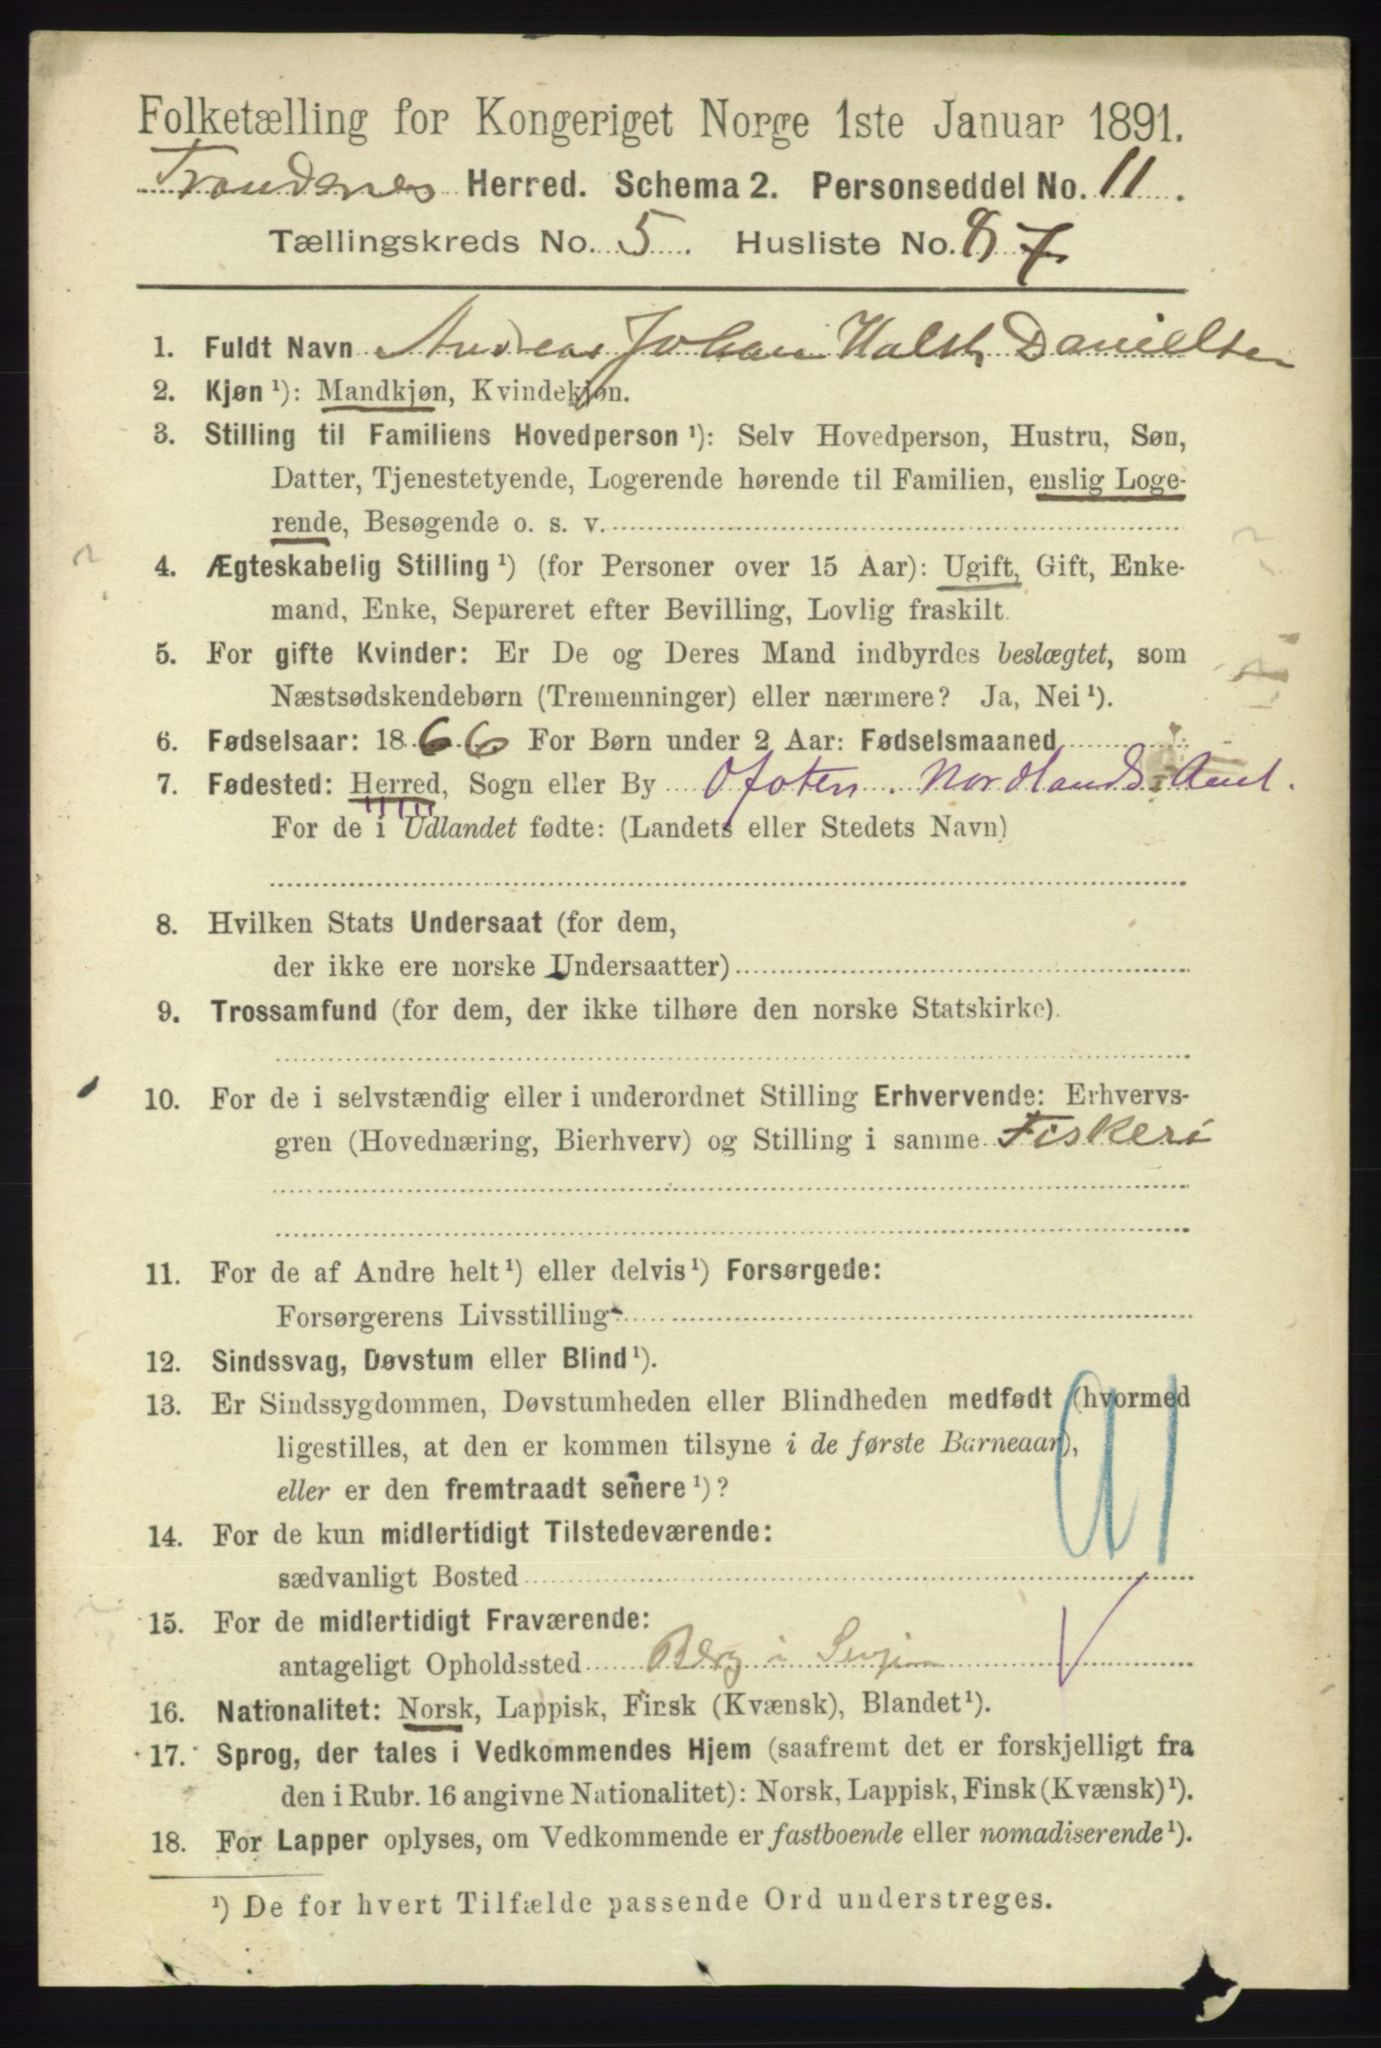 Folketælling for Kongeriget Norge 1ste Januar 1891.
Trondenes Herred. Schema 2. Personseddel No. 11.
Tællingskreds No. 5. Husliste No. 87
1. Fuldt Navn Andreas Johan Holst Danielsen
2. Kjøn ¹): Mandkjøn, Kvindekjøn.
3. Stilling til Familiens Hovedperson ¹): Selv Hovedperson, Hustru, Søn,
Datter, Tjenestetyende, Logerende hørende til Familien, enslig Loge-
rende, Besøgende o. s. v.
4. Ægteskabelig Stilling ¹) (for Personer over 15 Aar): Ugift, Gift, Enke-
mand, Enke, Separeret efter Bevilling, Lovlig fraskilt.
5. For gifte Kvinder: Er De og Deres Mand indbyrdes beslægtet, som
Næstsødskendebørn (Tremenninger) eller nærmere? Ja, Nei ¹).
6. Fødselsaar: 1866 For Børn under 2 Aar: Fødselsmaaned
7. Fødested: Herred, Sogn eller By Ofoten. Nordlands Amt.
For de i Udlandet fødte: (Landets eller Stedets Navn)
8. Hvilken Stats Undersaat (for dem,
der ikke ere norske Undersaatter)
9. Trossamfund (for dem, der ikke tilhøre den norske Statskirke).
10. For de i selvstændig eller i underordnet Stilling Erhvervende: Erhvervs-
gren (Hovednæring, Bierhverv) og Stilling i samme Fiskeri
11. For de af Andre helt ¹) eller delvis ¹) Forsørgede:
Forsørgerens Livsstilling
12. Sindssvag, Døvstum eller Blind ¹).
13. Er Sindssygdommen, Døvstumheden eller Blindheden medfødt (hvormed
ligestilles, at den er kommen tilsyne i de første Barneaar),
eller er den fremtraadt senere ¹)?
14. For de kun midlertidigt Tilstedeværende:
sædvanligt Bosted
15. For de midlertidigt Fraværende:
antageligt Opholdssted Berg i Senjen
16. Nationalitet: Norsk, Lappisk, Finsk (Kvænsk), Blandet ¹).
17. Sprog, der tales i Vedkommendes Hjem (saafremt det er forskjelligt fra
den i Rubr. 16 angivne Nationalitet): Norsk, Lappisk, Finsk (Kvænsk) ¹).
18. For Lapper oplyses, om Vedkommende er fastboende eller nomadiserende ¹).
¹) De for hvert Tilfælde passende Ord understreges.